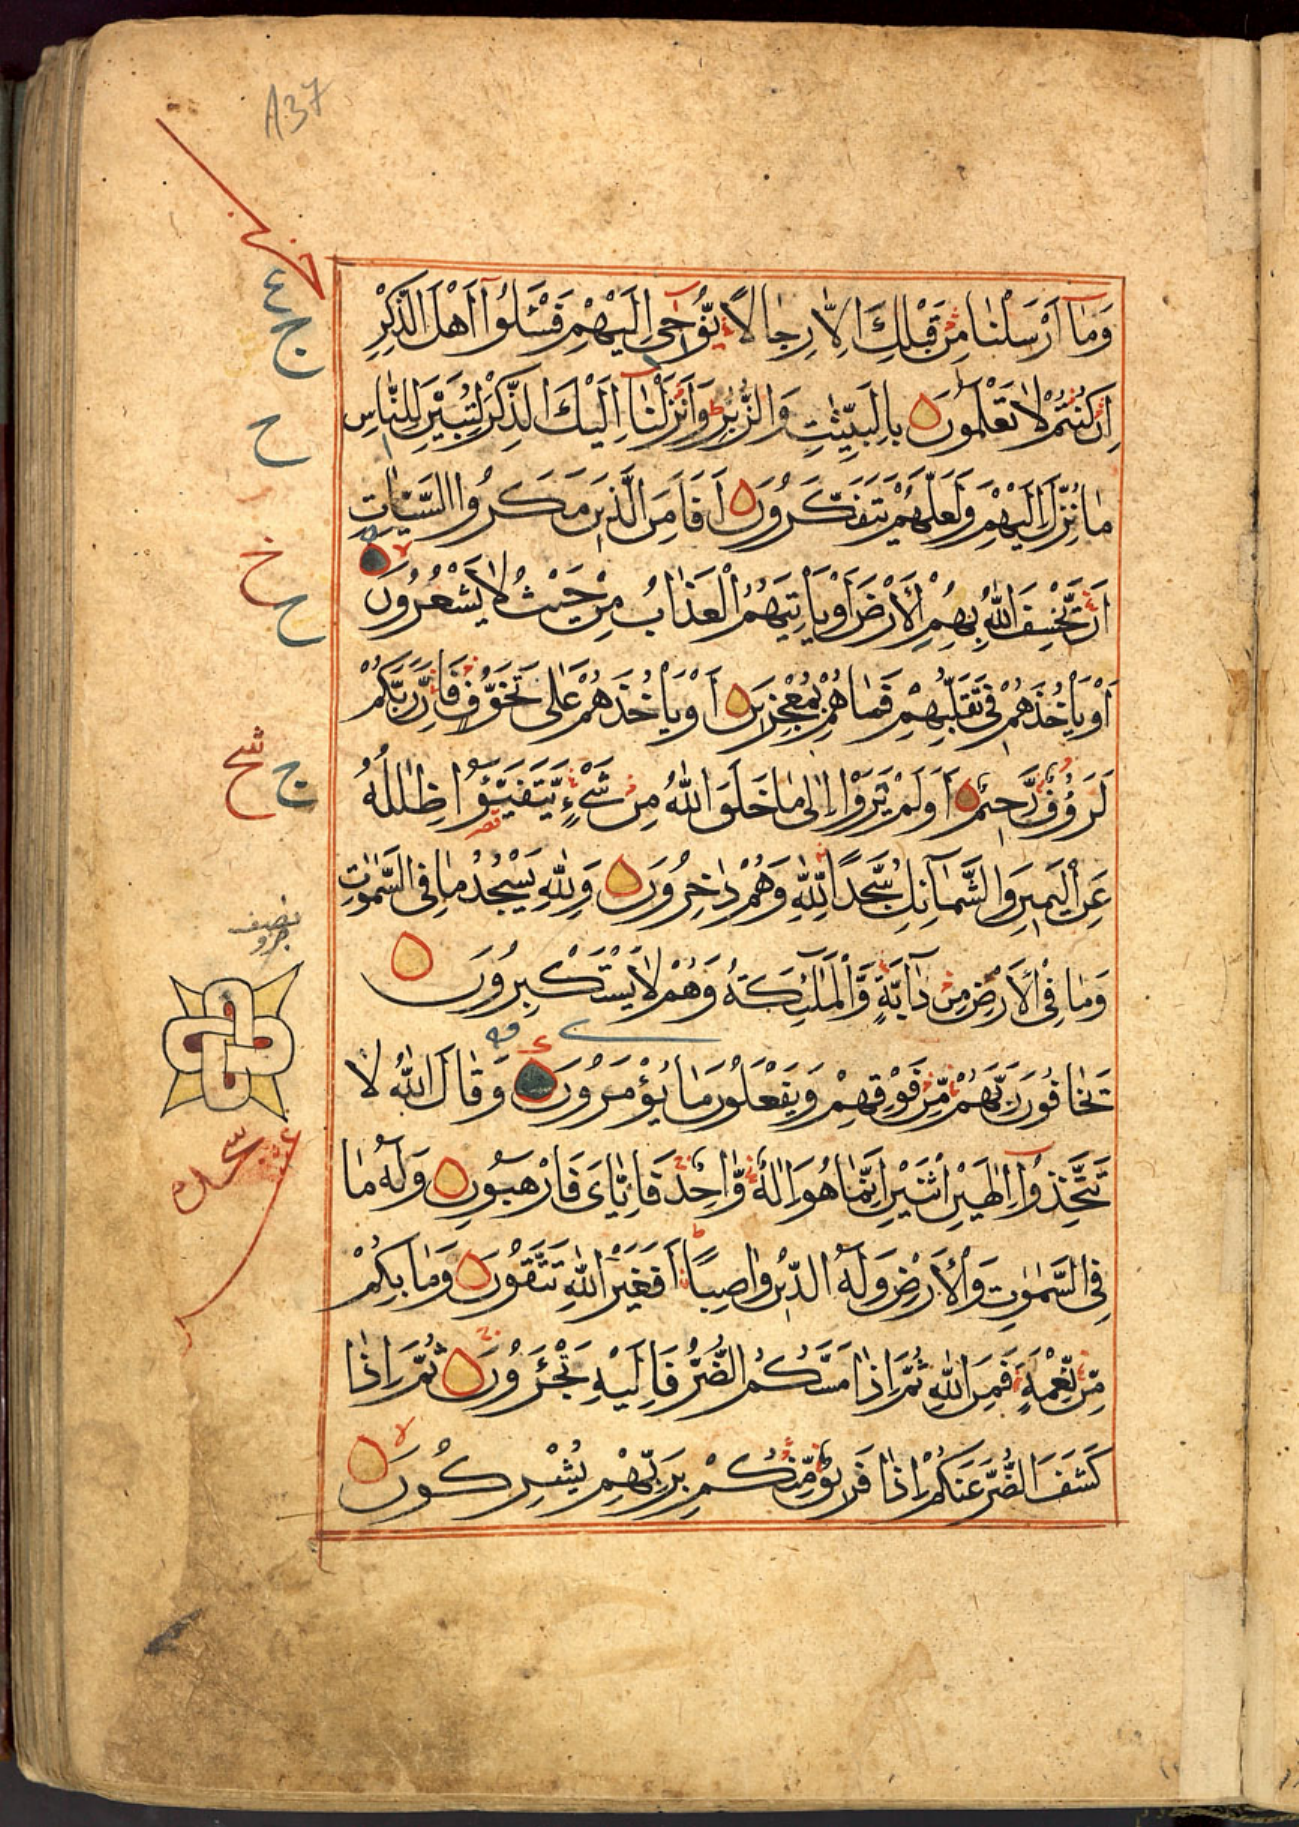 A37
وَمَآ اَرْسَلْنَا مِنْ قَبْلِكَ اِلَّا رِجَالًا يُّوْحٰى اِلَيْهِمْ فَسْـَٔلُوْٓا اَهْلَ الذِّكْرِ
اِنْ كُنْتُمْ لَا تَعْلَمُوْنَ بِالْبَيِّنٰتِ وَالزُّبُرِ وَاَنْزَلْنَآ اِلَيْكَ الذِّكْرَ لِتُبَيِّنَ لِلنَّاسِ
مَا نُزِّلَ اِلَيْهِمْ وَلَعَلَّهُمْ يَتَفَكَّرُوْنَ اَفَاَمِنَ الَّذِيْنَ مَكَرُوا السَّيِّاٰتِ
اَنْ يَّخْسِفَ اللّٰهُ بِهِمُ الْاَرْضَ اَوْ يَاْتِيَهُمُ الْعَذَابُ مِنْ حَيْثُ لَا يَشْعُرُوْنَ
اَوْ يَاْخُذَهُمْ فِىْ تَقَلُّبِهِمْ فَمَا هُمْ بِمُعْجِزِيْنَ اَوْ يَاْخُذَهُمْ عَلٰى تَخَوُّفٍ فَاِنَّ رَبَّكُمْ
لَرَءُوْفٌ رَّحِيْمٌ اَوَلَمْ يَرَوْا اِلٰى مَا خَلَقَ اللّٰهُ مِنْ شَىْءٍ يَّتَفَيَّؤُا ظِلٰلُهٗ
عَنِ الْيَمِيْنِ وَالشَّمَآئِلِ سُجَّدًا لِّلّٰهِ وَهُمْ دٰخِرُوْنَ وَلِلّٰهِ يَسْجُدُ مَا فِى السَّمٰوٰتِ
وَمَا فِى الْاَرْضِ مِنْ دَآبَّةٍ وَّالْمَلٰٓئِكَةُ وَهُمْ لَا يَسْتَكْبِرُوْنَ
نصف
جزو
يَخَافُوْنَ رَبَّهُمْ مِّنْ فَوْقِهِمْ وَيَفْعَلُوْنَ مَا يُؤْمَرُوْنَ وَقَالَ اللّٰهُ لَا
تَتَّخِذُوْٓا اِلٰهَيْنِ اثْنَيْنِ اِنَّمَا هُوَ اِلٰهٌ وَّاحِدٌ فَاِيَّاىَ فَارْهَبُوْنِ وَلَهٗ مَا
فِى السَّمٰوٰتِ وَالْاَرْضِ وَلَهُ الدِّيْنُ وَاصِبًا اَفَغَيْرَ اللّٰهِ تَتَّقُوْنَ وَمَا بِكُمْ
مِّنْ نِّعْمَةٍ فَمِنَ اللّٰهِ ثُمَّ اِذَا مَسَّكُمُ الضُّرُّ فَاِلَيْهِ تَجْـَٔرُوْنَ ثُمَّ اِذَا
كَشَفَ الضُّرَّ عَنْكُمْ اِذَا فَرِيْقٌ مِّنْكُمْ بِرَبِّهِمْ يُشْرِكُوْنَ